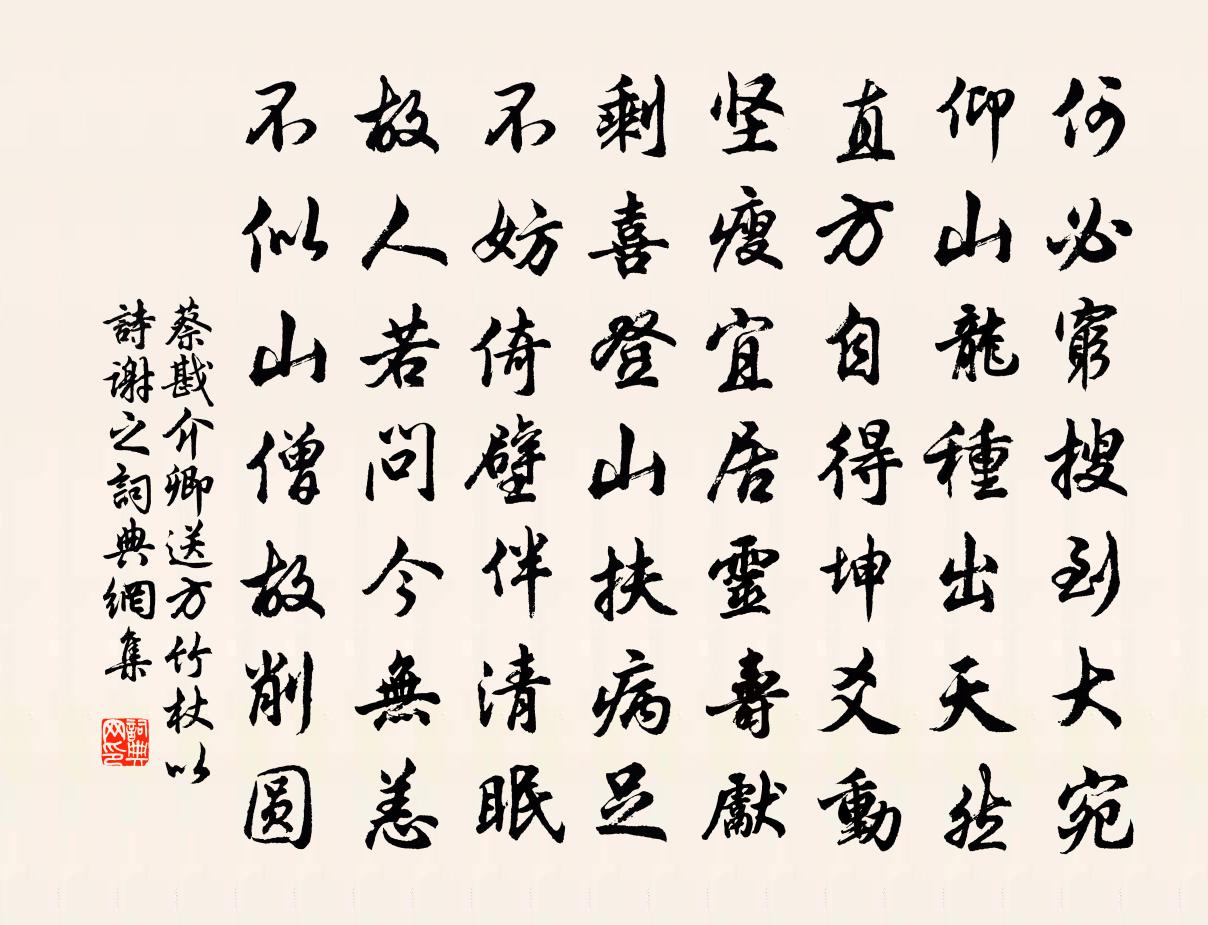 何必窮搜到大宛
仰山龍種出天然
直方自得坤爻動
坚瘦宜居靈壽獻
剩喜登山扶病足
不妨倚壁伴清眠
故人若问今無恙
不似山僧故削圆
蔡戡介卿送方竹杖以
詩谢之詞典網集
詞典网印